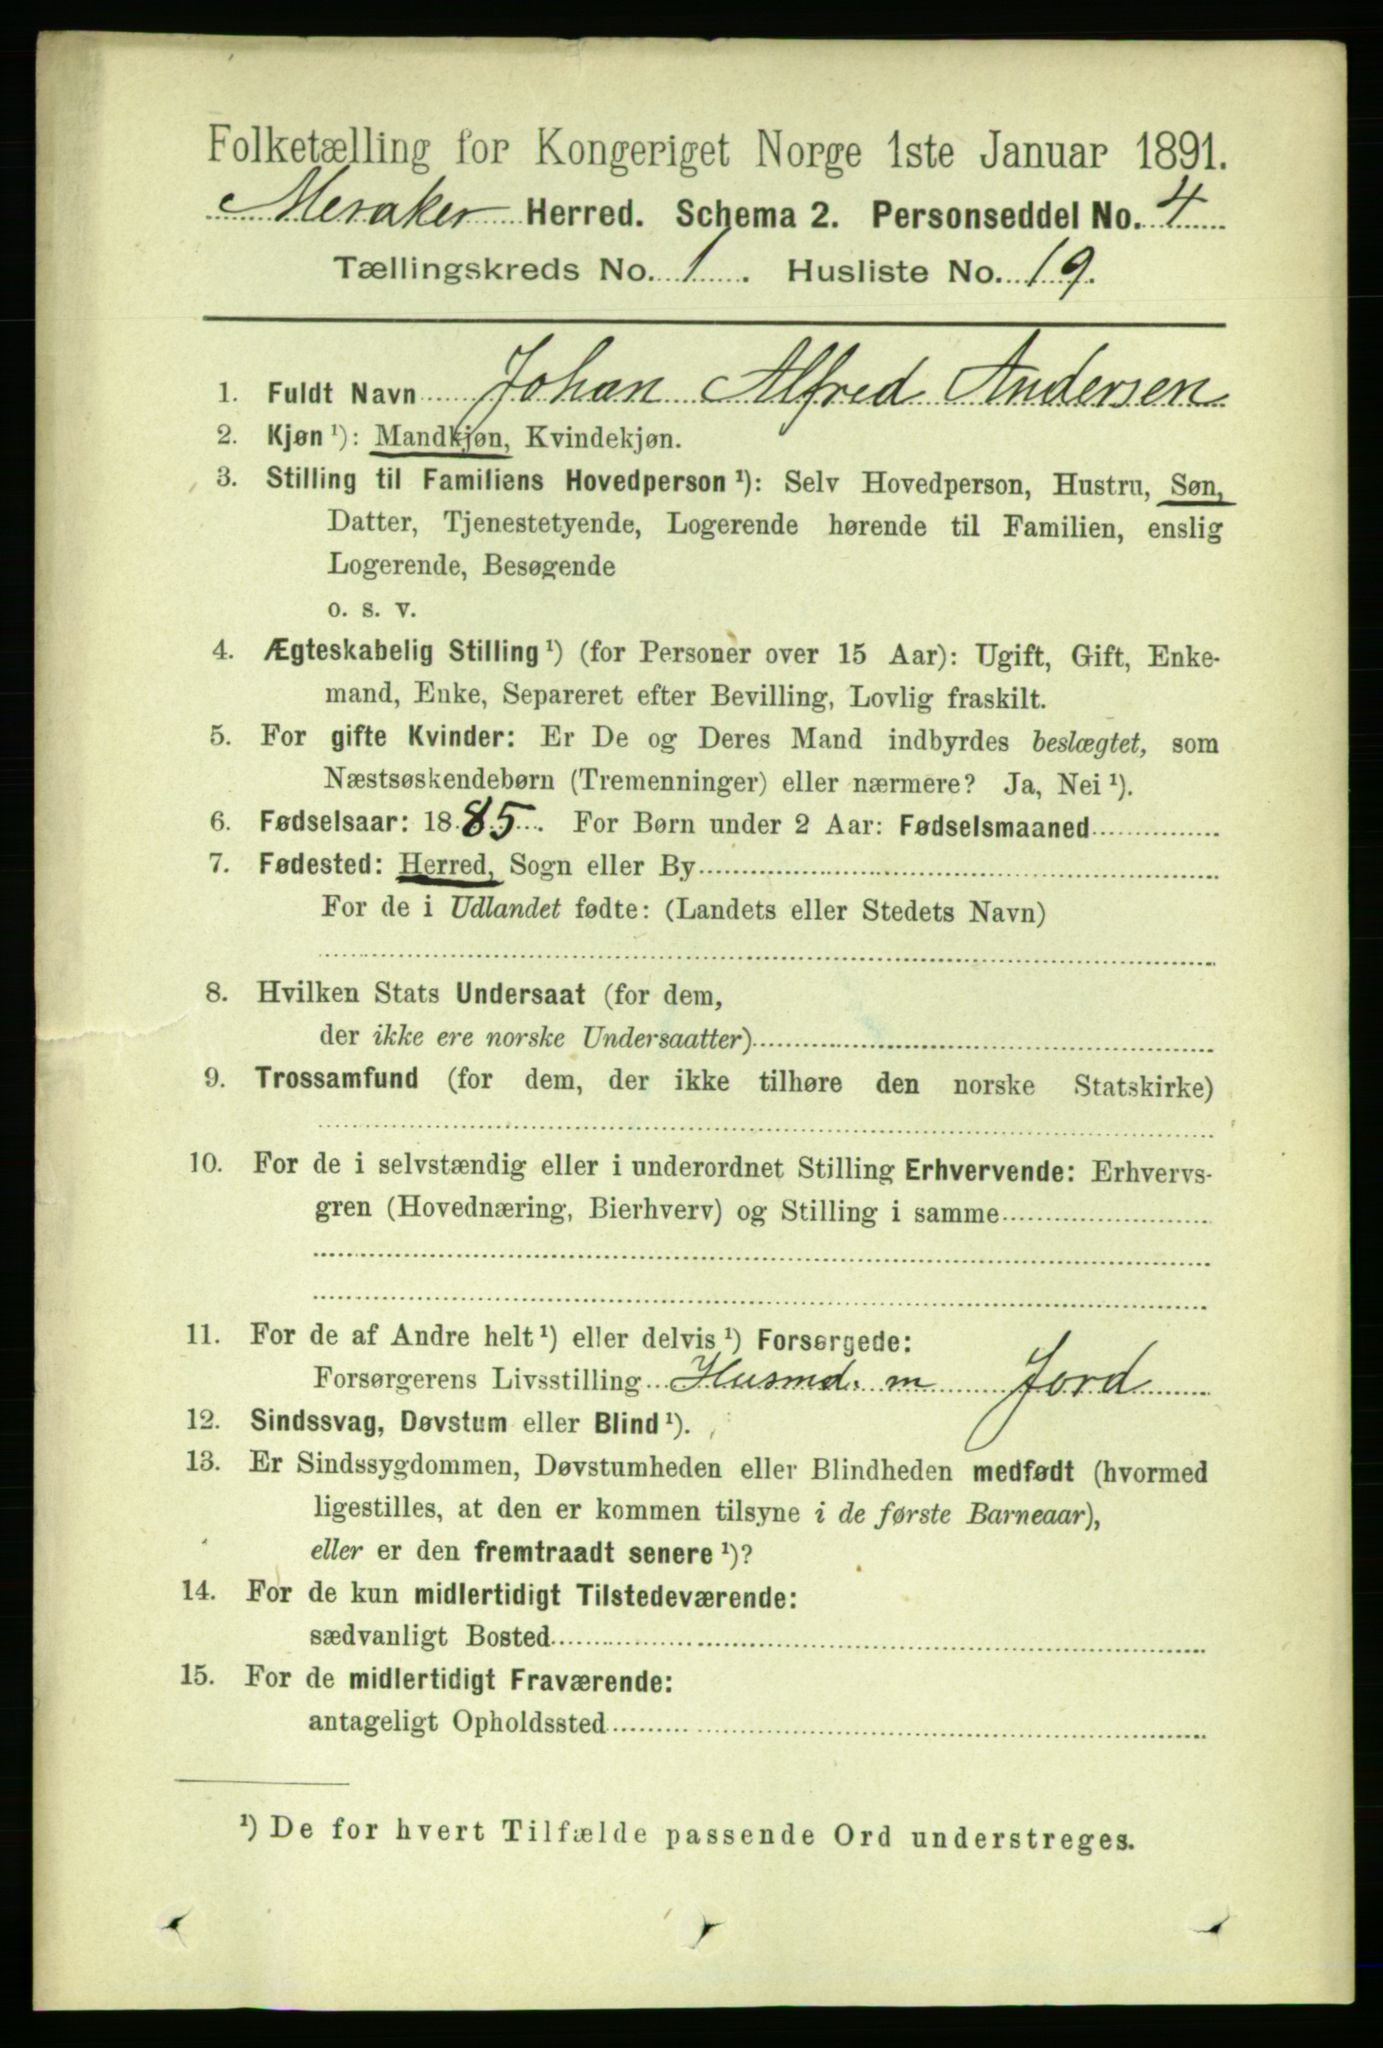 Folketælling for Kongeriget Norge 1ste Januar 1891.
Meraker Herred. Schema 2. Personseddel No. 4
Tællingskreds No. 1. Husliste No. 19.
1. Fuldt Navn Johan Alfred Andersen
2. Kjøn ¹): Mandkjøn, Kvindekjøn.
3. Stilling til Familiens Hovedperson ¹): Selv Hovedperson, Hustru, Søn,
Datter, Tjenestetyende, Logerende hørende til Familien, enslig
Logerende, Besøgende
o. s. v.
4. Ægteskabelig Stilling ¹) (for Personer over 15 Aar): Ugift, Gift, Enke-
mand, Enke, Separeret efter Bevilling, Lovlig fraskilt.
5. For gifte Kvinder: Er De og Deres Mand indbyrdes beslægtet, som
Næstsøskendebørn (Tremenninger) eller nærmere? Ja, Nei ¹).
6. Fødselsaar: 1885. For Børn under 2 Aar: Fødselsmaaned
7. Fødested: Herred, Sogn eller By
For de i Udlandet fødte: (Landets eller Stedets Navn)
8. Hvilken Stats Undersaat (for dem,
der ikke ere norske Undersaatter)
9. Trossamfund (for dem, der ikke tilhøre den norske Statskirke)
10. For de i selvstændig eller i underordnet Stilling Erhvervende: Erhvervs-
gren (Hovednæring, Bierhverv) og Stilling i samme
11. For de af Andre helt ¹) eller delvis ¹) Forsørgede:
Forsørgerens Livsstilling Husmd. m Jord
12. Sindssvag, Døvstum eller Blind ¹).
13. Er Sindssygdommen, Døvstumheden eller Blindheden medfødt (hvormed
ligestilles, at den er kommen tilsyne i de første Barneaar),
eller er den fremtraadt senere ¹)?
14. For de kun midlertidigt Tilstedeværende:
sædvanligt Bosted
15. For de midlertidigt Fraværende:
antageligt Opholdssted
¹) De for hvert Tilfælde passende Ord understreges.